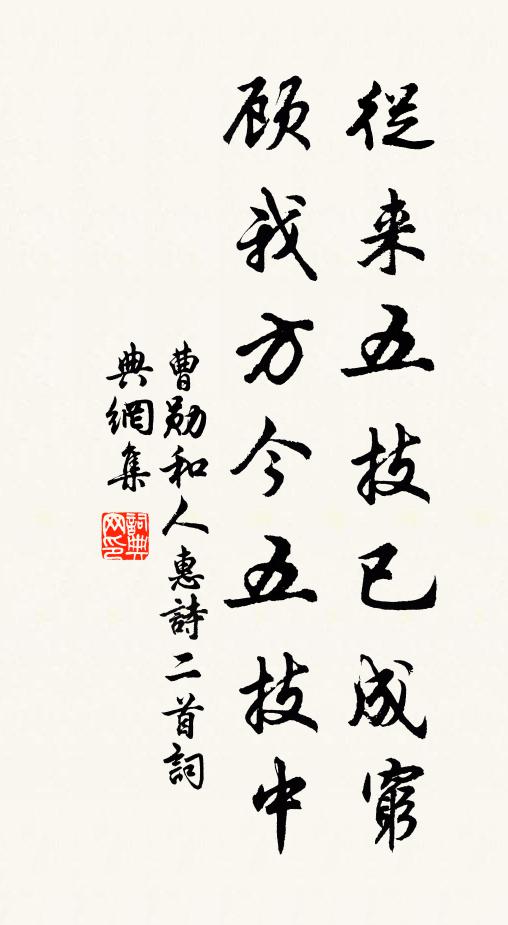 從来五技已成窮
顾我方今五技中
曹勋和人惠詩二首詞
典網集
詞典网印